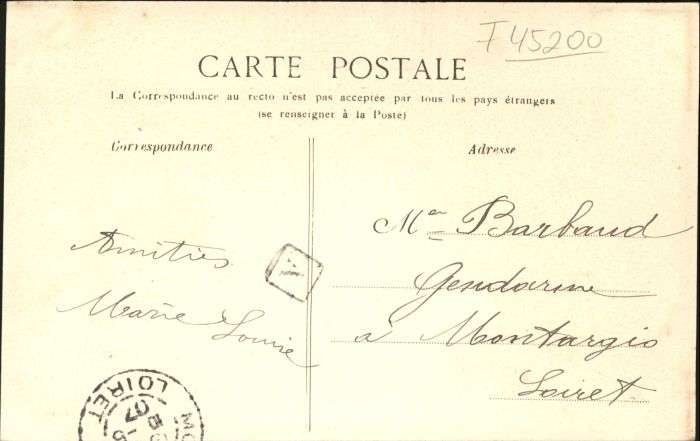 F 45200
CARTE POSTALE
La Correspondance au recto n'est pas acceptée par tous les pays étrangers
(se renseigner à la Poste)
Correspondance
Adresse
Amitiés
Marie Louise
Mr Barbaud
Gendarme
à Montargis
Loiret
LOIRET
07